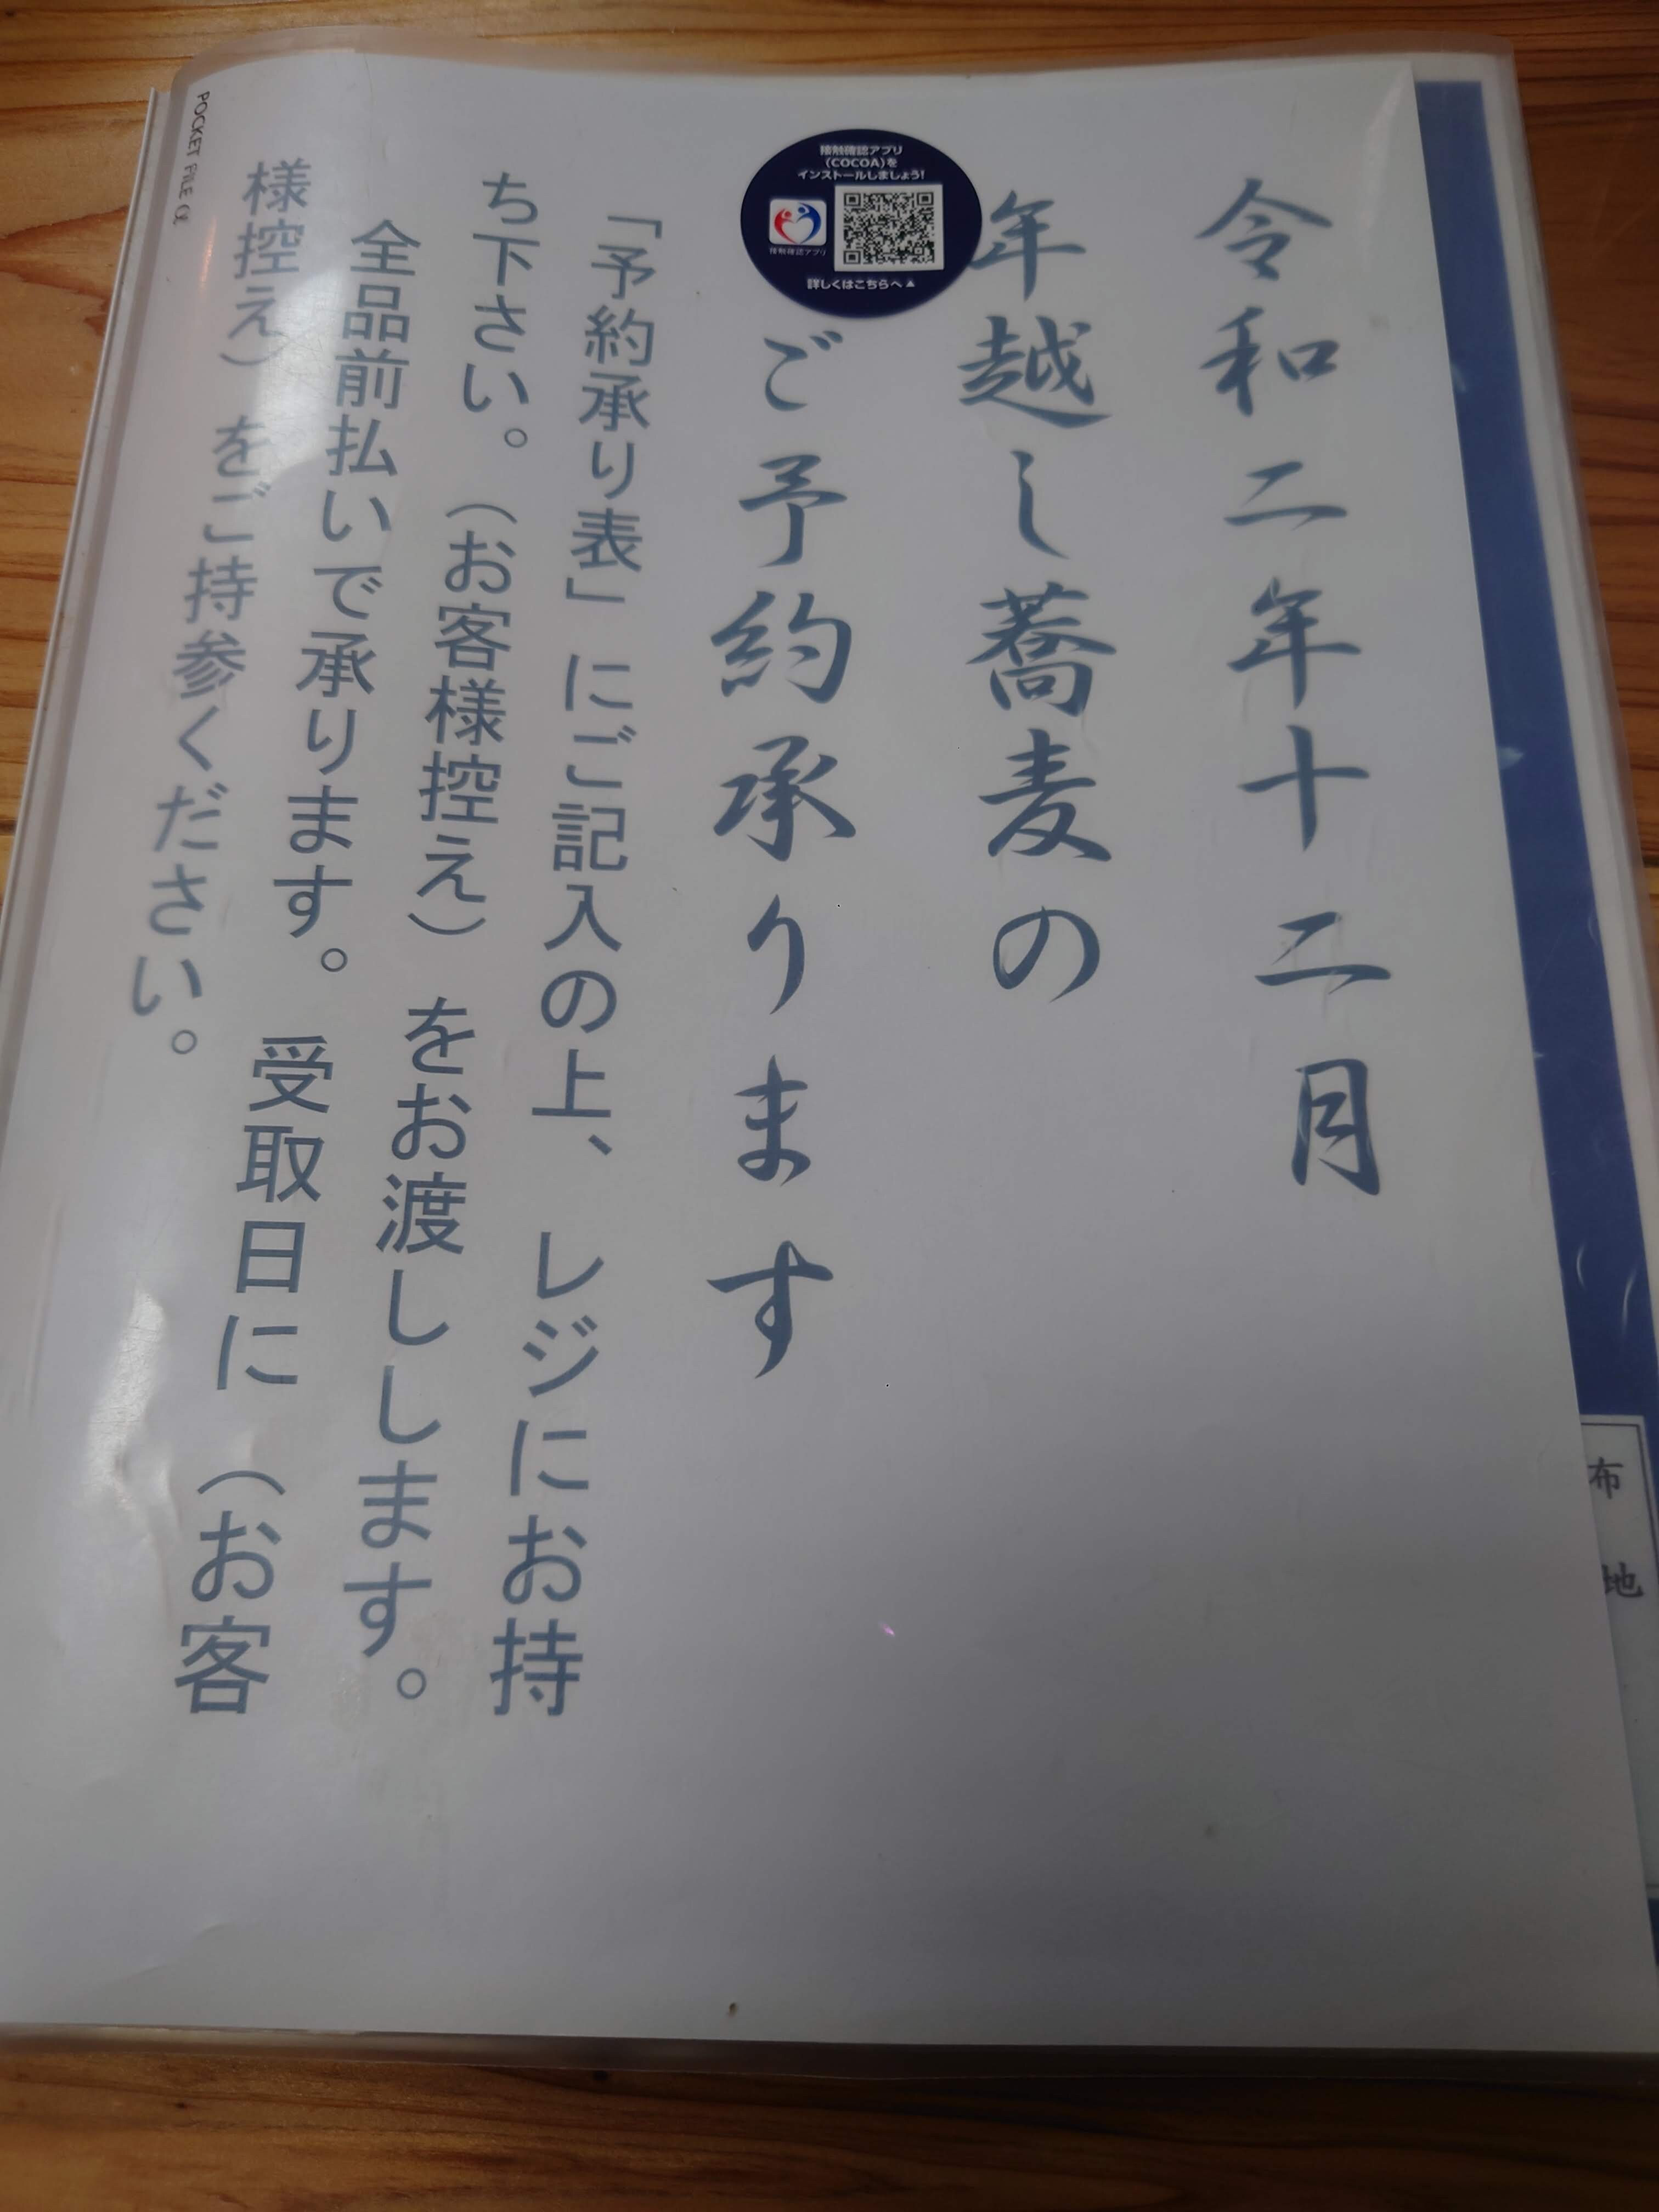 令和二年十二月
年越し蕎麦の
ご予約承ります
「予約承り表」にご記入の上、レジにお持
ち下さい。（お客様控え）をお渡しします。
全品前払いで承ります。受取日に（お客
様控え）をご持参ください。
接触確認アプリ
(COCOA)を
インストールしましょう!
接触確認アプリ
詳しくはこちらへ▲
POCKET FILE α
布
地